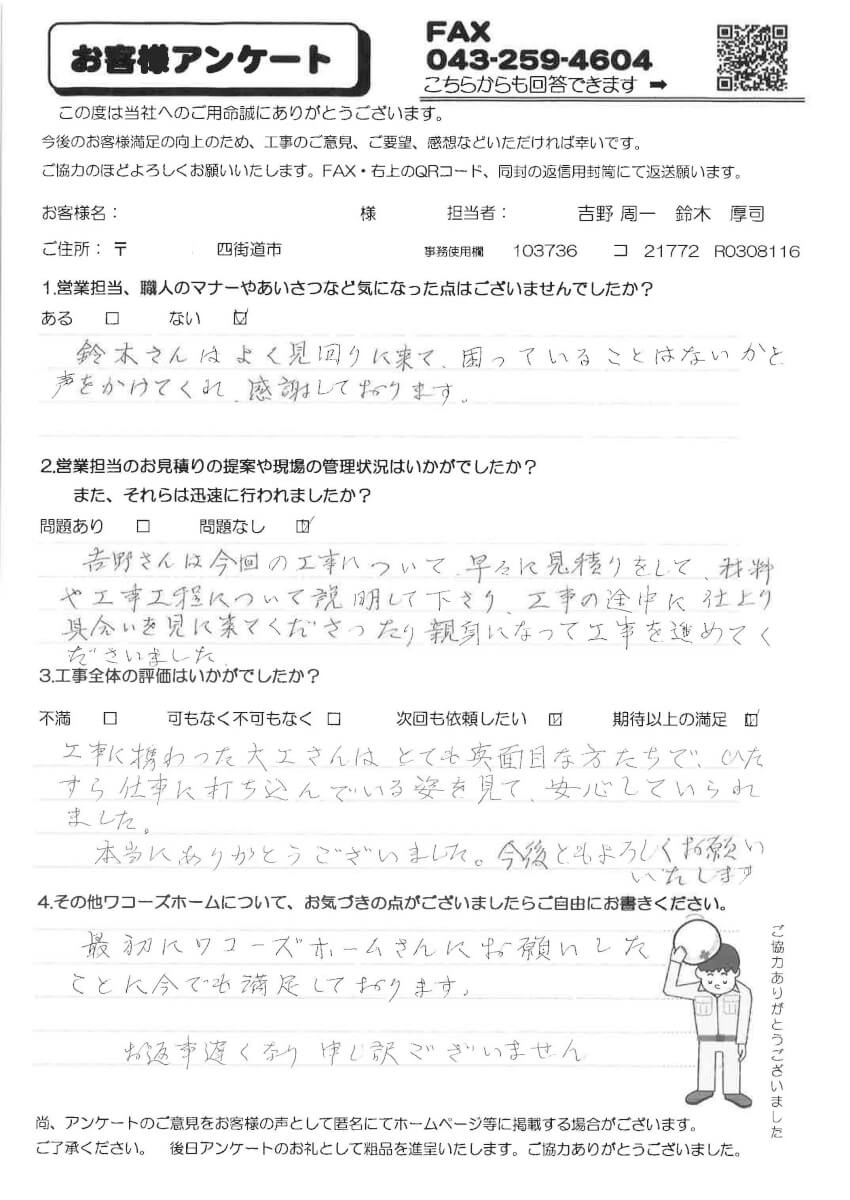 お客様アンケート
FAX
043-259-4604
こちらからも回答できます ➡
この度は当社へのご用命誠にありがとうございます。
今後のお客様満足の向上のため、工事のご意見、ご要望、感想などいただければ幸いです。
ご協力のほどよろしくお願いいたします。FAX・右上のQRコード、同封の返信用封筒にて返送願います。
お客様名： 様 担当者： 吉野 周一 鈴木 厚司
ご住所：〒 四街道市 事務使用欄 103736 コ 21772 R0308116
1.営業担当、職人のマナーやあいさつなど気になった点はございませんでしたか？
ある □ ない ☑
鈴木さんはよく見回りに来て、困っていることはないかと
声をかけてくれ、感謝しております。
2.営業担当のお見積りの提案や現場の管理状況はいかがでしたか？
また、それらは迅速に行われましたか？
問題あり □ 問題なし ☑
吉野さんは今回の工事について、早々に見積りをして、材料
や工事工程について説明して下さり、工事の途中に仕上り
具合いを見に来てくださったり親身になって工事を進めてく
ださいました。
3.工事全体の評価はいかがでしたか？
不満 □ 可もなく不可もなく □ 次回も依頼したい ☑ 期待以上の満足 ☑
工事に携わった大工さんはとても真面目な方たちで、ひた
すら仕事に打ち込んでいる姿を見て、安心していられ
ました。
本当にありがとうございました。今後ともよろしくお願い
いたします
4.その他ワコーズホームについて、お気づきの点がございましたらご自由にお書きください。
最初にワコーズホームさんにお願いした
ことに今でも満足しております。
お返事遅くなり申し訳ございません
ご協力ありがとうございました
尚、アンケートのご意見をお客様の声として匿名にてホームページ等に掲載する場合がございます。
ご了承ください。 後日アンケートのお礼として粗品を進呈いたします。ご協力ありがとうございました。